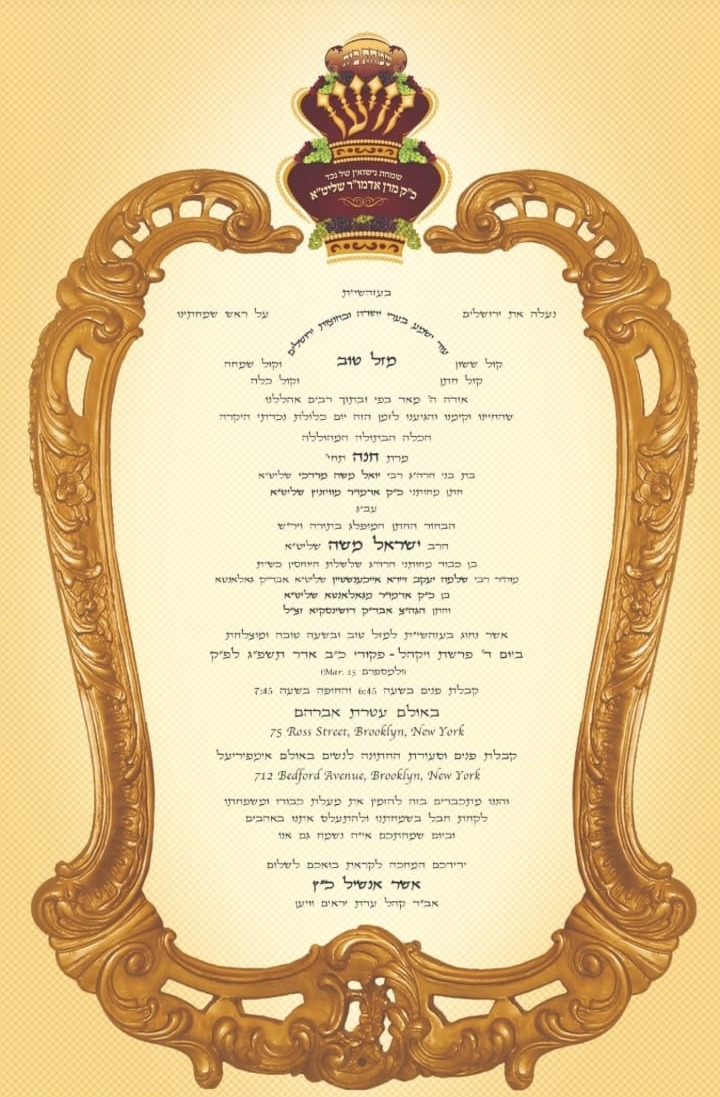 שמחת בית
וויען
שמחת נישואין של נכד
כ"ק מרן אדמו"ר שליט"א
בעזהשי"ת
נעלה את ירושלים על ראש שמחתינו
עוד ישמע בערי יהודה ובחוצות ירושלים
קול ששון מזל טוב וקול שמחה
קול חתן וקול כלה
אודה ה' מאד בפי ובתוך רבים אהללנו
שהחיינו וקימנו והגיענו לזמן הזה יום כלולת נכדתי היקרה
הכלה הבתולה המהוללה
מרת חנה תחי'
בת בני הרה"ג רבי יואל משה מרדכי שליט"א
חתן מחותני כ"ק אדמו"ר מוויזניץ שליט"א
עב"ג
הבחור החתן המופלג בתורה ויר"ש
הרב ישראל משה שליט"א
בן כבוד מחותני הרה"ג שלשלת היוחסין כש"ת
מוה"ר רבי שלמה יעקב זיידא אייכענשטיין שליט"א אבד"ק גאלאנטא
בן כ"ק אדמו"ר מגאלאנטא שליט"א
וחתן הגה"צ אבד"ק דושינסקיא זצ"ל
אשר נחוג בעזהשי"ת למזל טוב ובשעה טובה ומוצלחת
ביום ד' פרשת ויקהל - פקודי כ"ב אדר תשפ"ג לפ"ק
(ולמספרם Mar. 15)
קבלת פנים בשעה 6:45 והחופה בשעה 7:45
באולם עטרת אברהם
75 Ross Street, Brooklyn, New York
קבלת פנים וסעודת החתונה לנשים באולם אימפיריעל
712 Bedford Avenue, Brooklyn, New York
והננו מתכבדים בזה להזמין את מעלת כבודו ומשפחתו
לקחת חבל בשמחתנו ולהתעלס אתנו באהבים
וביום שמחתכם אי"ה נשמח גם אנו
ידידכם המחכה לקראת בואכם לשלום
אשר אנשיל כ"ץ
אב"ד קהל עדת יראים וויען